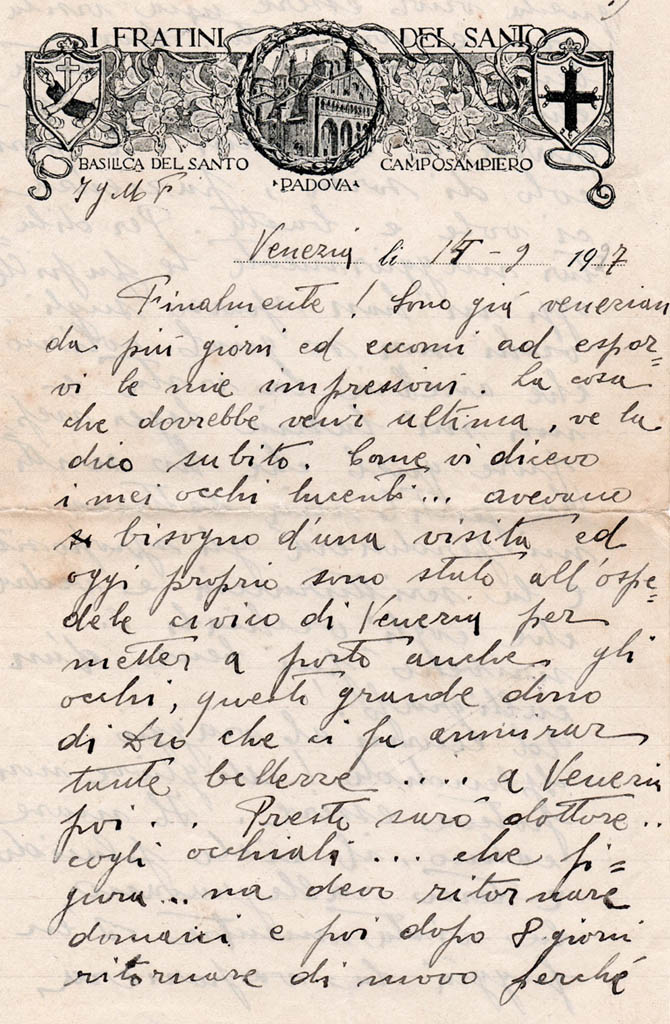 I FRATINI DEL SANTO
BASILICA DEL SANTO CAMPOSAMPIERO
PADOVA
J y M F
Venezia li 14 - 9 1937
Finalmente! Sono già venezian
da più giorni ed eccomi ad espor=
vi le mie impressioni. La cosa
che dovrebbe venir ultima, ve la
dico subito. Come vi dicevo
i miei occhi lucenti... avevano
bisogno d'una visita ed
oggi proprio sono stato all'ospe=
dale civico di Venezia per
metter a posto anche gli
occhi, questo grande dono
di Dio che ci fa ammirar
tante bellezze ..... a Venezia
poi ... Presto sarò dottore..
cogli occhiali... che fi=
gura... ma devo ritornare
domani e poi dopo 8 giorni
ritornare di nuovo perché